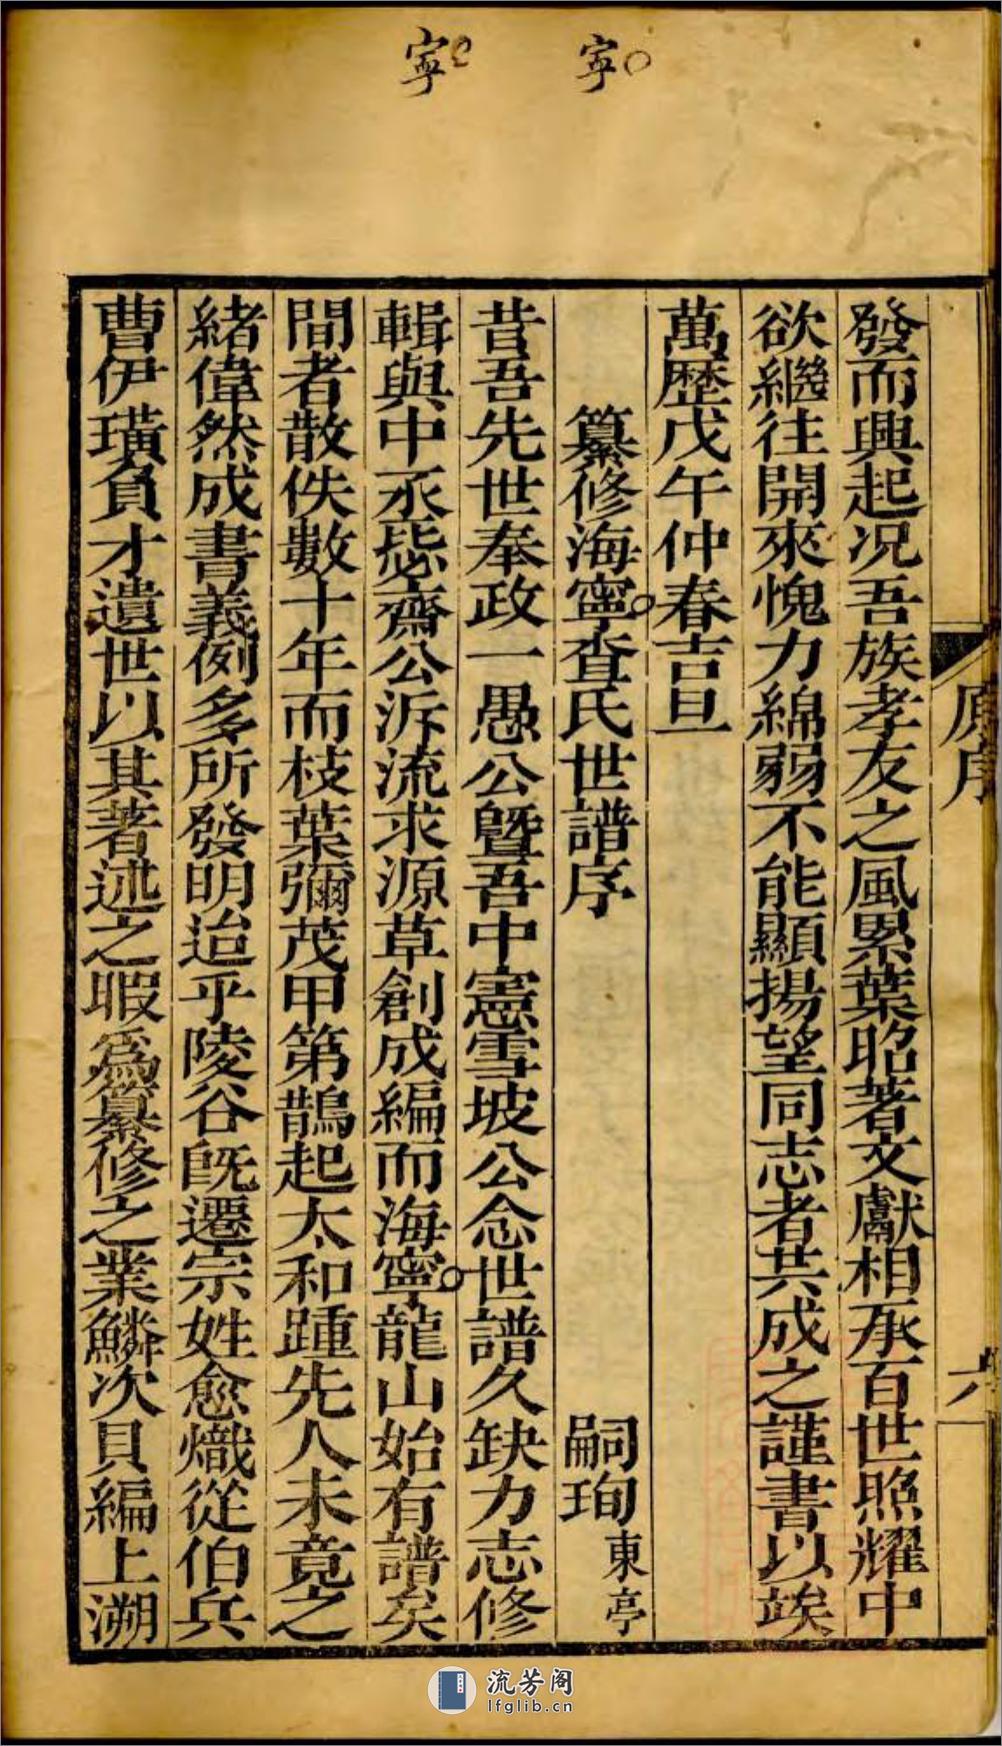 寧 寧
原序
六
發而興起况吾族孝友之風累葉昭著文獻相承百世照耀中
欲繼往開來愧力綿弱不能顯揚望同志者共成之謹書以竢
萬歴戊午仲春吉旦
纂修海寧查氏世譜序 嗣珣東亭
昔吾先世奉政一愚公曁吾中憲雪坡公念世譜久缺力志修
輯與中丞毖齋公泝流求源草創成編而海寧龍山始有譜矣
間者散佚數十年而枝葉彌茂甲第鵲起太和踵先人未竟之
緒偉然成書義例多所發明迨乎陵谷旣遷宗姓愈熾從伯兵
曹伊璜負才遺世以其著述之暇爲纂修之業鱗次貝編上溯
流芳阁
lfglib.cn